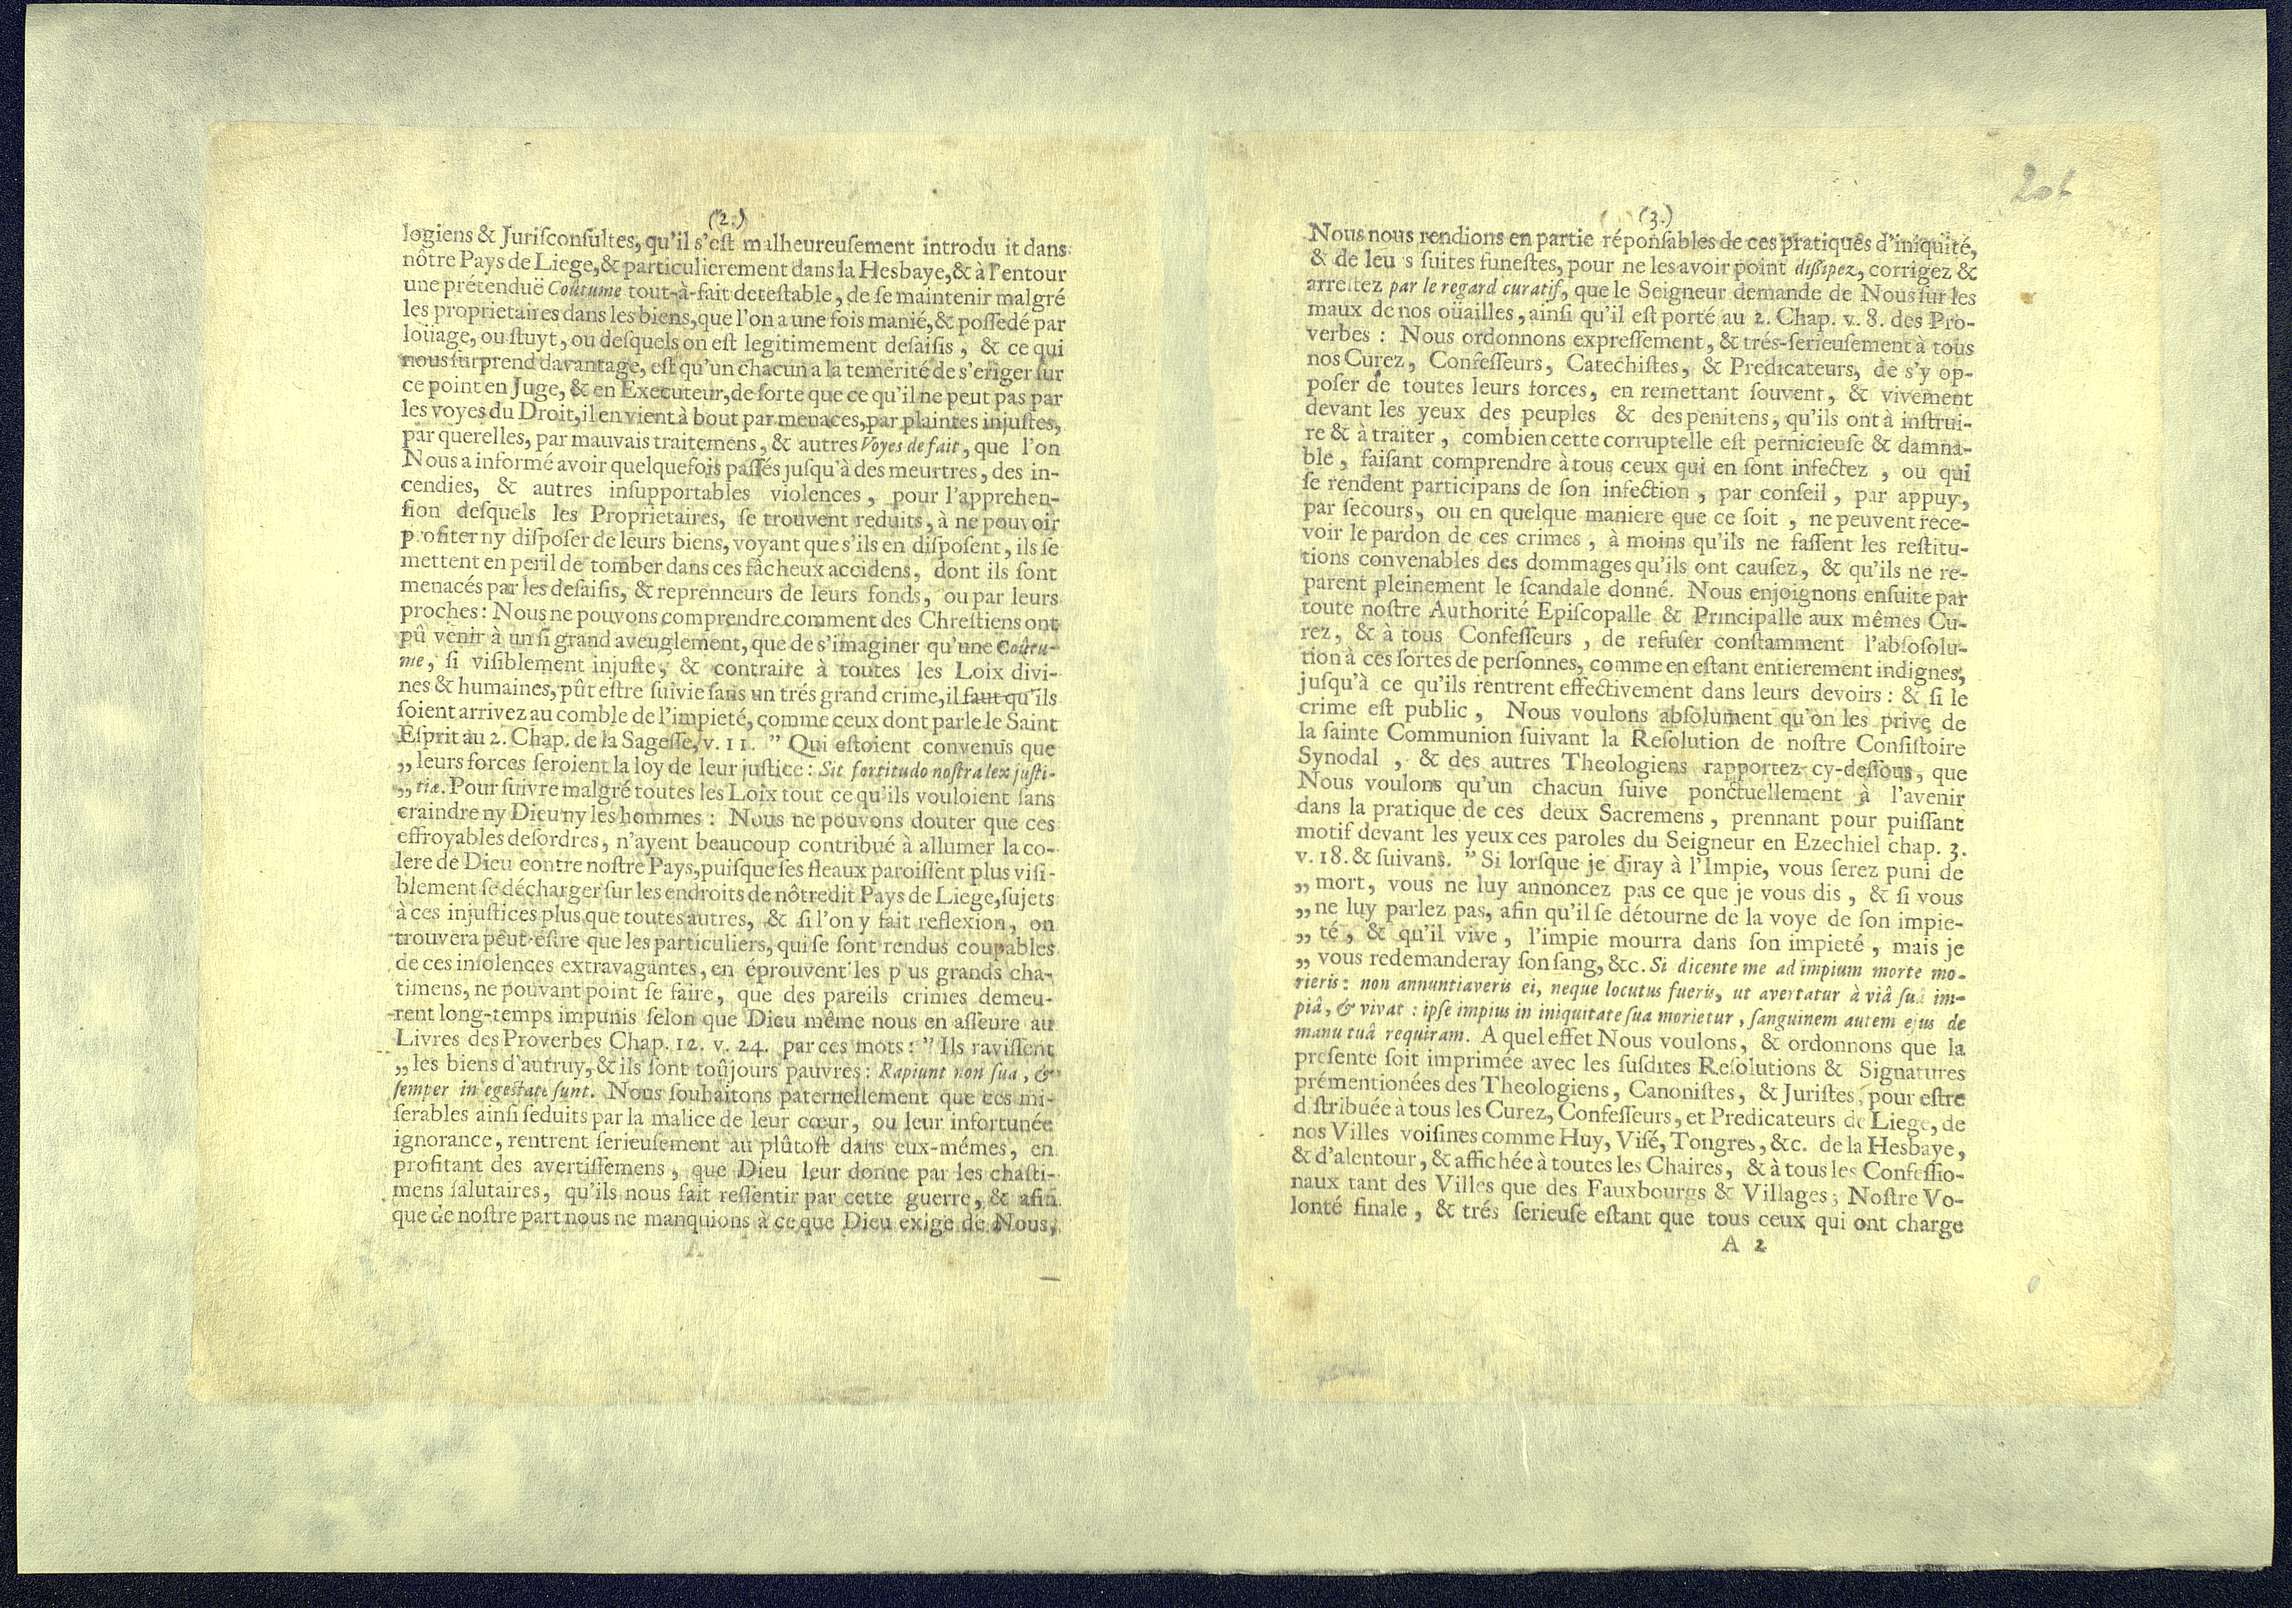 (2.)
logiens & Juriſconſultes, qu'il s'eſt malheureuſement introdu it dans
nôtre Pays de Liege, & particulierement dans la Hesbaye, & à l'entour
une prétenduë Coûtume tout-à-fait deteſtable, de ſe maintenir malgré
les proprietaires dans les biens, que l'on a une fois manié, & poſſedé par
loüage, ou ſtuyt, ou deſquels on eſt legitimement deſaiſis, & ce qui
nous ſurprend davantage, eſt qu'un chacun a la temerité de s'eriger ſur
ce point en Juge, & en Executeur, de ſorte que ce qu'il ne peut pas par
les voyes du Droit, il en vient à bout par menaces, par plaintes injuſtes,
par querelles, par mauvais traitemens, & autres Voyes de fait, que l'on
Nous a informé avoir quelquefois paſſés juſqu'à des meurtres, des in-
cendies, & autres inſupportables violences, pour l'apprehen-
ſion deſquels les Proprietaires, ſe trouvent reduits, à ne pouvoir
profiter ny diſpoſer de leurs biens, voyant que s'ils en diſpoſent, ils ſe
mettent en peril de tomber dans ces fâcheux accidens, dont ils ſont
menacés par les deſaiſis, & reprenneurs de leurs fonds, ou par leurs
proches: Nous ne pouvons comprendre comment des Chreſtiens ont
pû venir à un ſi grand aveuglement, que de s'imaginer qu'une Coûtu-
me, ſi viſiblement injuſte, & contraire à toutes les Loix divi-
nes & humaines, pût eſtre ſuivie ſans un trés grand crime, il faut qu'ils
ſoient arrivez au comble de l'impieté, comme ceux dont parle le Saint
Eſprit au 2. Chap. de la Sageſſe, v. 11. " Qui eſtoient convenus que
„ leurs forces ſeroient la loy de leur juſtice: Sit fortitudo noſtra lex juſti-
„ tiæ. Pour ſuivre malgré toutes les Loix tout ce qu'ils vouloient ſans
craindre ny Dieu ny les hommes: Nous ne pouvons douter que ces
effroyables deſordres, n'ayent beaucoup contribué à allumer la co-
lere de Dieu contre noſtre Pays, puiſque ſes fleaux paroiſſent plus viſi-
blement ſe décharger ſur les endroits de nôtredit Pays de Liege, ſujets
à ces injuſtices plus que toutes autres, & ſi l'on y fait reflexion, on
trouvera peut-eſtre que les particuliers, qui ſe ſont rendus coupables
de ces inſolences extravagantes, en éprouvent les p us grands cha-
timens, ne pouvant point ſe faire, que des pareils crimes demeu-
rent long-temps impunis ſelon que Dieu même nous en aſſeure au
Livres des Proverbes Chap. 12. v. 24. par ces mots: " Ils raviſſent
„ les biens d'autruy, & ils ſont toûjours pauvres: Rapiunt non ſua, &
ſemper in egeſtate ſunt. Nous ſouhaitons paternellement que ces mi-
ſerables ainſi ſeduits par la malice de leur cœur, ou leur infortunée
ignorance, rentrent ſerieuſement au plûtoſt dans eux-mêmes, en
profitant des avertiſſemens, que Dieu leur donne par les chaſti-
mens ſalutaires, qu'ils nous fait reſſentir par cette guerre, & afin
que de noſtre part nous ne manquions à ce que Dieu exige de Nous,
(3.)
Nous nous rendions en partie réponſables de ces pratiques d'iniquité,
& de leu s ſuites funeſtes, pour ne les avoir point diſſipez, corrigez &
arreſtez par le regard curatif, que le Seigneur demande de Nous ſur les
maux de nos oüailles, ainſi qu'il eſt porté au 2. Chap. v. 8. des Pro-
verbes: Nous ordonnons expreſſement, & trés-ſerieuſement à tous
nos Curez, Confeſſeurs, Catechiſtes, & Predicateurs, de s'y op-
poſer de toutes leurs forces, en remettant ſouvent, & vivement
devant les yeux des peuples & des penitens, qu'ils ont à inſtrui-
re & à traiter, combien cette corruptelle eſt pernicieuſe & damna-
ble, faiſant comprendre à tous ceux qui en ſont infectez, ou qui
ſe rendent participans de ſon infection, par conſeil, par appuy,
par ſecours, ou en quelque maniere que ce ſoit, ne peuvent rece-
voir le pardon de ces crimes, à moins qu'ils ne faſſent les reſtitu-
tions convenables des dommages qu'ils ont cauſez, & qu'ils ne re-
parent pleinement le ſcandale donné. Nous enjoignons enſuite par
toute noſtre Authorité Epiſcopalle & Principalle aux mêmes Cu-
rez, & à tous Confeſſeurs, de refuſer conſtamment l'abſoſolu-
tion à ces ſortes de perſonnes, comme en eſtant entierement indignes,
juſqu'à ce qu'ils rentrent effectivement dans leurs devoirs: & ſi le
crime eſt public, Nous voulons abſolument qu'on les prive de
la ſainte Communion ſuivant la Reſolution de noſtre Conſiſtoire
Synodal, & des autres Theologiens rapportez cy-deſſous, que
Nous voulons qu'un chacun ſuive ponctuellement à l'avenir
dans la pratique de ces deux Sacremens, prennant pour puiſſant
motif devant les yeux ces paroles du Seigneur en Ezechiel chap. 3.
v. 18. & ſuivans. " Si lorſque je diray à l'Impie, vous ſerez puni de
„ mort, vous ne luy annoncez pas ce que je vous dis, & ſi vous
„ ne luy parlez pas, afin qu'il ſe détourne de la voye de ſon impie-
„ té, & qu'il vive, l'impie mourra dans ſon impieté, mais je
„ vous redemanderay ſon ſang, &c. Si dicente me ad impium morte mo-
rieris: non annuntiaveris ei, neque locutus fueris, ut avertatur à viâ ſuâ im-
piâ, & vivat: ipſe impius in iniquitate ſua morietur, ſanguinem autem ejus de
manu tuâ requiram. A quel effet Nous voulons, & ordonnons que la
preſente ſoit imprimée avec les ſuſdites Reſolutions & Signatures
prémentionées des Theologiens, Canoniſtes, & Juriſtes, pour eſtre
d ſtribuée à tous les Curez, Confeſſeurs, et Predicateurs de Liege, de
nos Villes voiſines comme Huy, Viſé, Tongres, &c. de la Hesbaye,
& d'alentour, & affichée à toutes les Chaires, & à tous les Confeſſio-
naux tant des Villes que des Fauxbourgs & Villages; Noſtre Vo-
lonté finale, & trés ſerieuſe eſtant que tous ceux qui ont charge
A 2